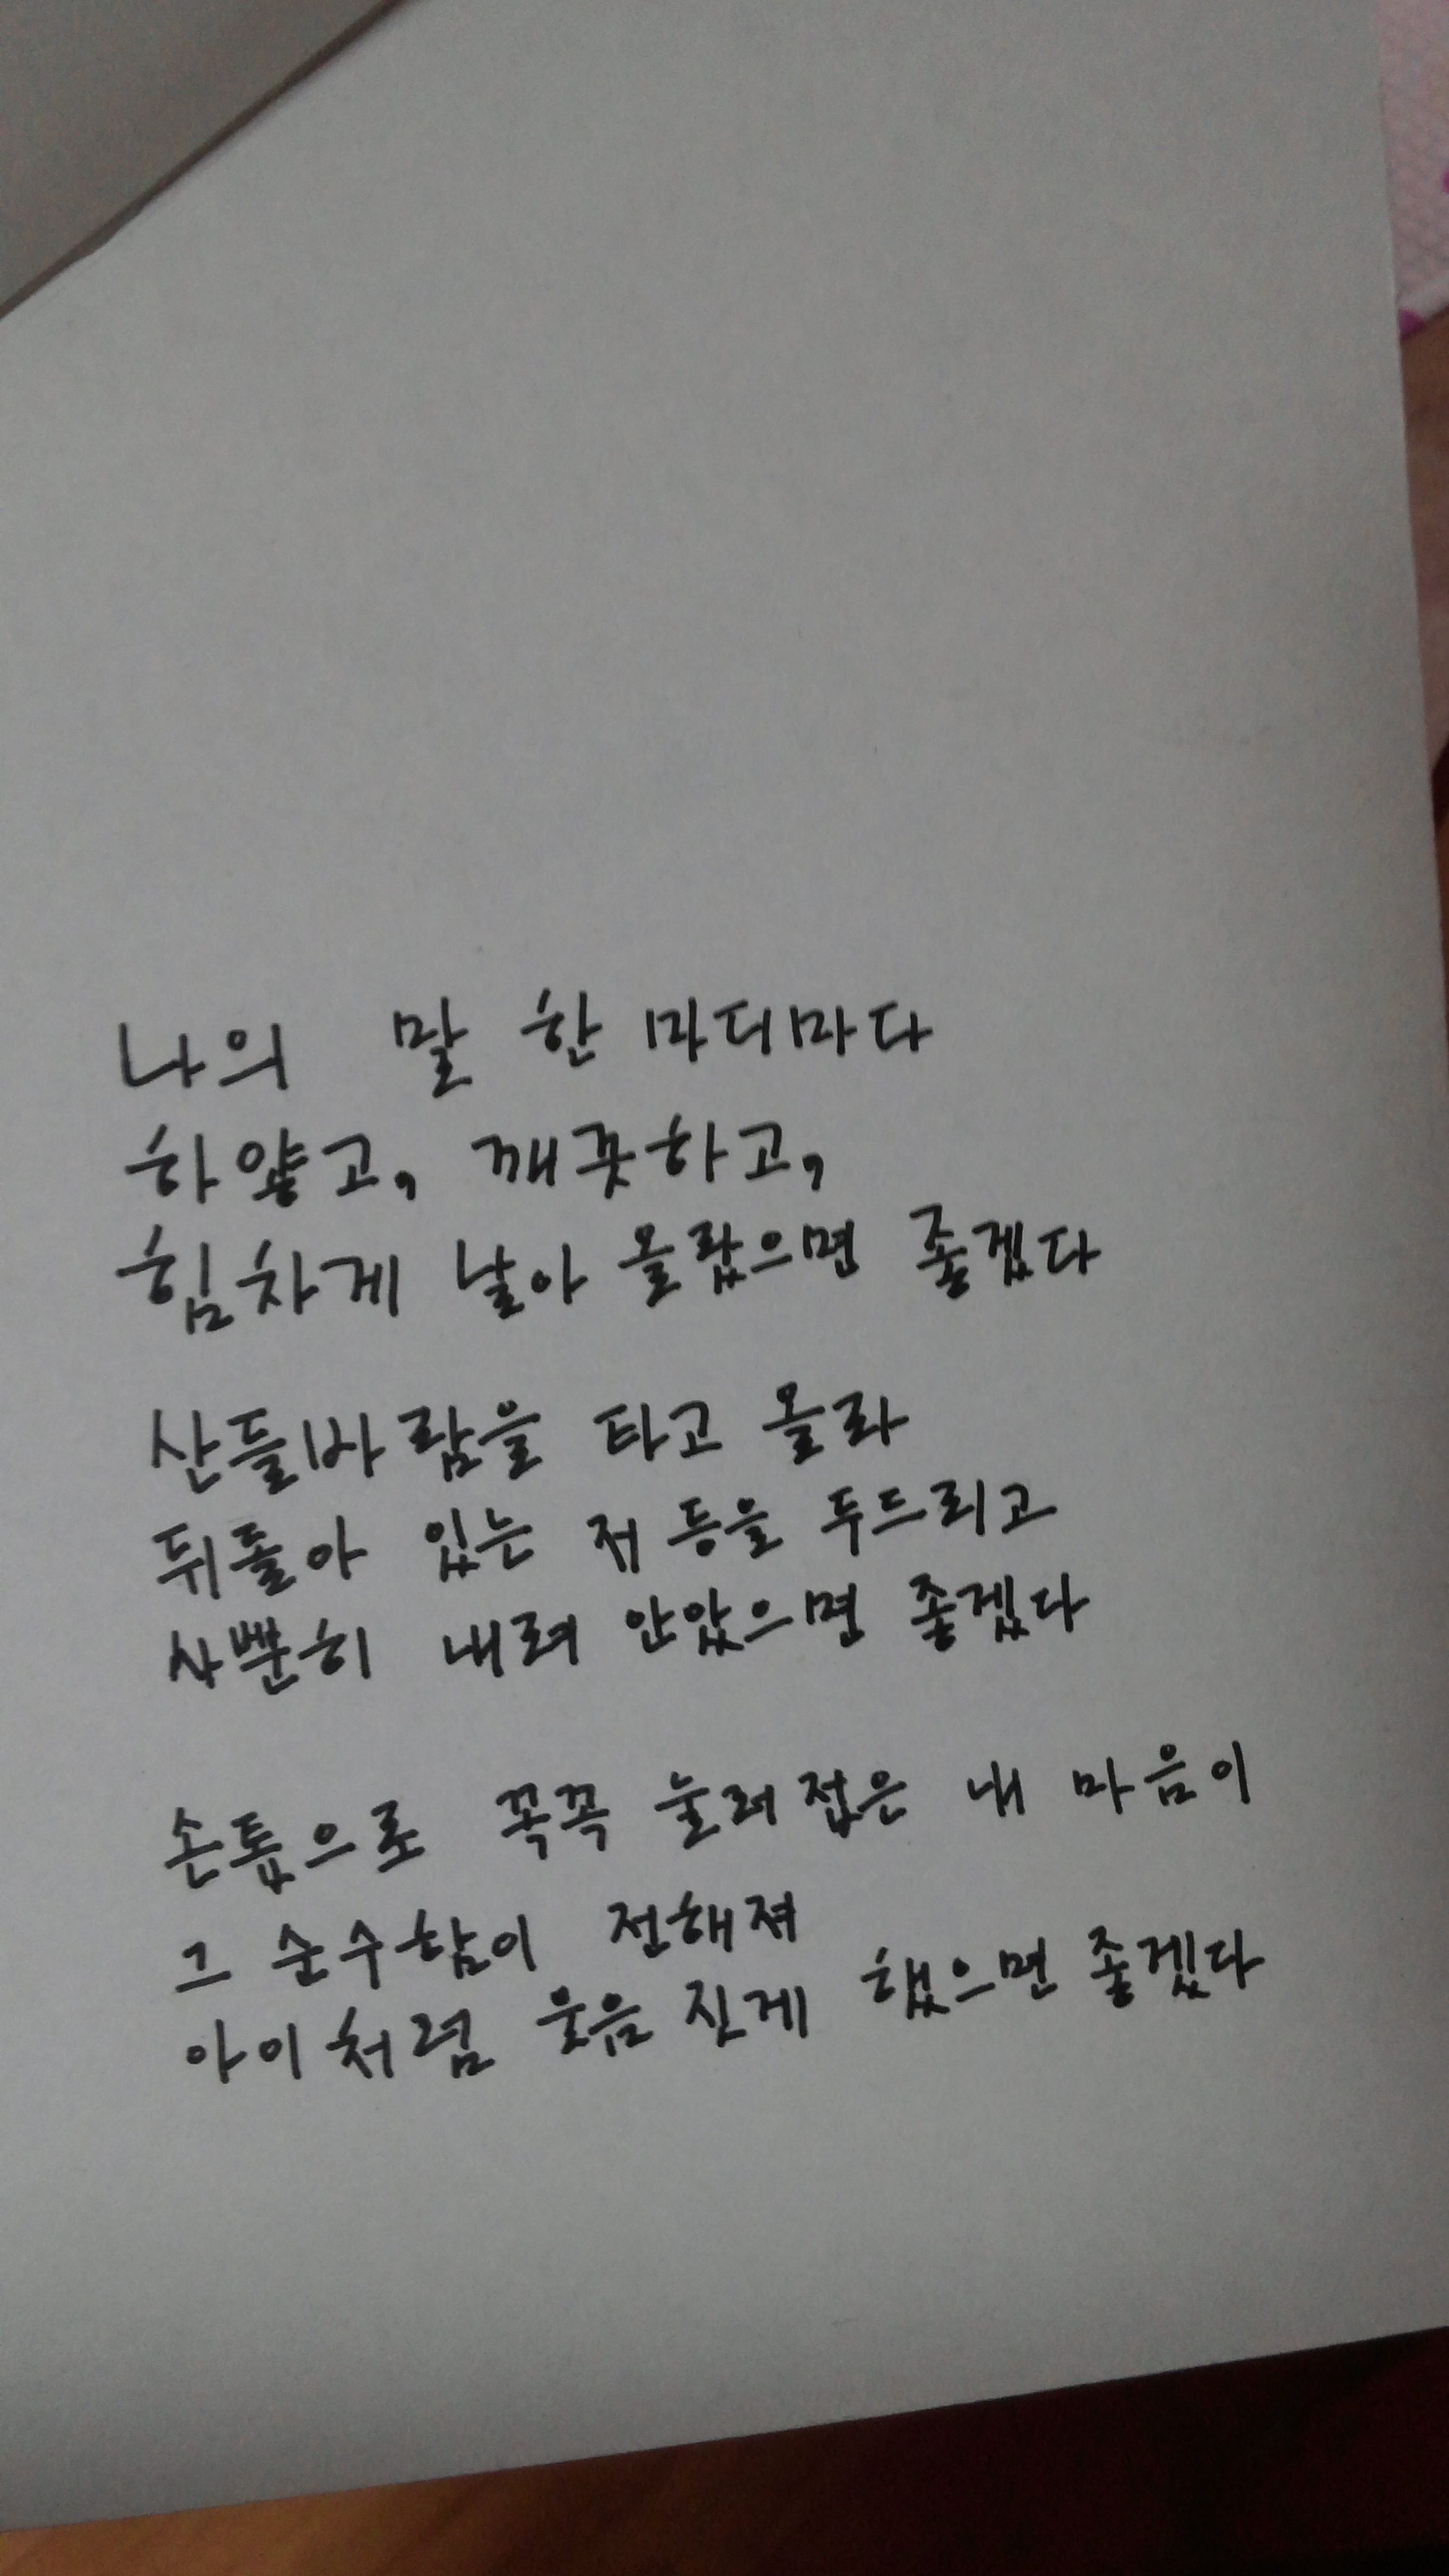 나의 말 한 마디마다
하얗고, 깨끗하고,
힘차게 날아 올랐으면 좋겠다
산들바람을 타고 올라
뒤돌아 있는 저 등을 두드리고
사뿐히 내려 안았으면 좋겠다
손톱으로 꼭꼭 눌러 접은 내 마음이
그 순수함이 전해져
아이처럼 웃음 짓게 했으면 좋겠다